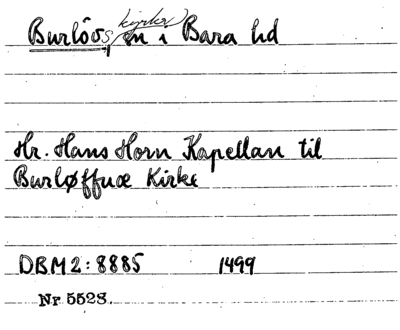 Burlövs kyrka, sn i Bara hd
Hr. Hans Horn Kapellan til
Burløffuæ Kirke
DBM2:8885 1499
Nr 5523.